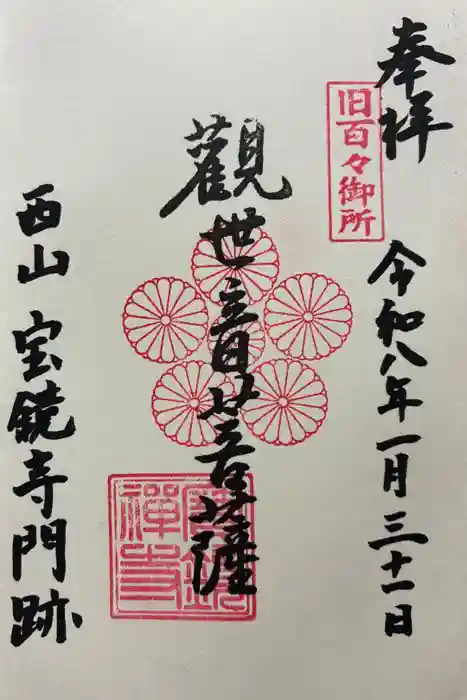 奉拝
旧百々御所
令和八年一月三十一日
觀世音菩薩
寳鏡
禪寺
西山 宝鏡寺門跡